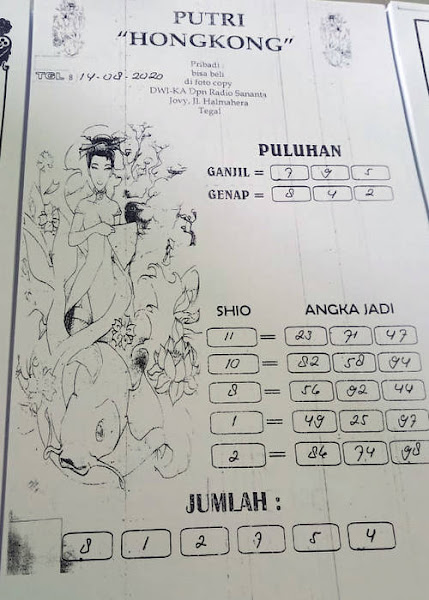 PUTRI
“HONGKONG”
Pribadi :
bisa beli
di foto copy
DWI-KA Dpn Radio Sananta
Jovy, Jl. Halmahera
Tegal
TGL : 14-08-2020
PULUHAN
GANJIL = 7 9 5
GENAP = 8 4 2
SHIO ANGKA JADI
11 = 23 71 47
10 = 82 58 94
8 = 56 92 44
1 = 49 25 97
2 = 86 74 98
JUMLAH :
8 1 2 7 5 4